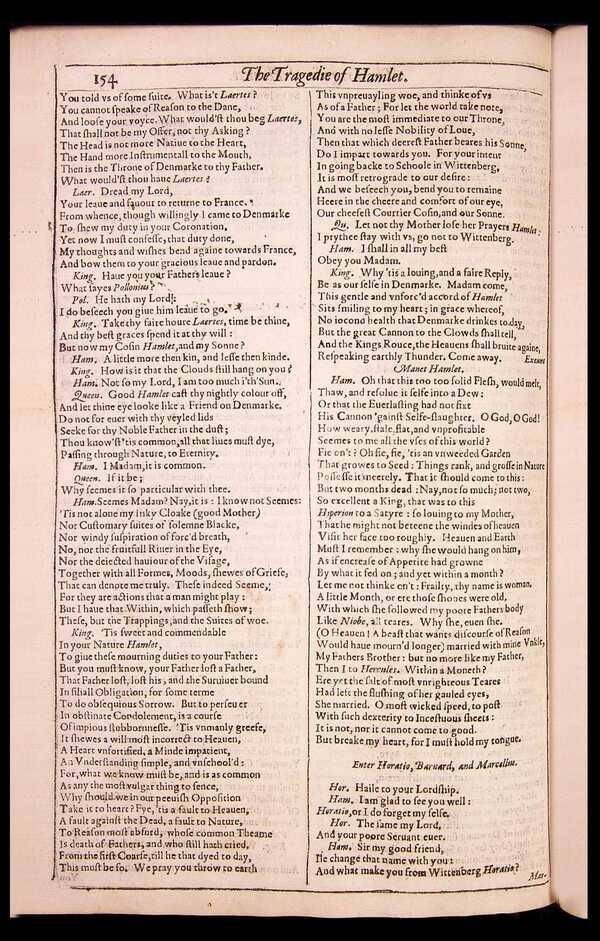 154
The Tragedie of Hamlet.
You told vs of some suite. What is't Laertes?
You cannot speake of Reason to the Dane,
And loose your voyce. What would'st thou beg Laertes,
That shall not be my Offer, not thy Asking?
The Head is not more Natiue to the Heart,
The Hand more Instrumentall to the Mouth,
Then is the Throne of Denmarke to thy Father.
What would'st thou haue Laertes?
Laer. Dread my Lord,
Your leaue and fauour to returne to France,
From whence, though willingly I came to Denmarke
To shew my duty in your Coronation,
Yet now I must confesse, that duty done,
My thoughts and wishes bend againe towards France,
And bow them to your gracious leaue and pardon.
King. Haue you your Fathers leaue?
What sayes Pollonius?
Pol. He hath my Lord:
I do beseech you giue him leaue to go.
King. Take thy faire houre Laertes, time be thine,
And thy best graces spend it at thy will:
But now my Cosin Hamlet, and my Sonne?
Ham. A little more then kin, and lesse then kinde.
King. How is it that the Clouds still hang on you?
Ham. Not so my Lord, I am too much i'th'Sun.
Queen. Good Hamlet cast thy nightly colour off,
And let thine eye looke like a Friend on Denmarke.
Do not for euer with thy veyled lids
Seeke for thy Noble Father in the dust;
Thou know'st 'tis common, all that liues must dye,
Passing through Nature, to Eternity.
Ham. I Madam, it is common.
Queen. If it be;
Why seemes it so particular with thee.
Ham. Seemes Madam? Nay, it is: I know not Seemes:
'Tis not alone my Inky Cloake (good Mother)
Nor Customary suites of solemne Blacke,
Nor windy suspiration of forc'd breath,
No, nor the fruitfull Riuer in the Eye,
Nor the deiected hauiour of the Visage,
Together with all Formes, Moods, shewes of Griefe,
That can denote me truly. These indeed Seeme,
For they are actions that a man might play:
But I haue that Within, which passeth show;
These, but the Trappings, and the Suites of woe.
King. 'Tis sweet and commendable
In your Nature Hamlet,
To giue these mourning duties to your Father:
But you must know, your Father lost a Father,
That Father lost, lost his, and the Suruiuer bound
In filiall Obligation, for some terme
To do obsequious Sorrow. But to perseuer
In obstinate Condolement, is a course
Of impious stubbornnesse. 'Tis vnmanly greefe,
It shewes a will most incorrect to Heauen,
A Heart vnfortified, a Minde impatient,
An Vnderstanding simple, and vnschool'd:
For, what we know must be, and is as common
As any the most vulgar thing to sence,
Why should we in our peeuish Opposition
Take it to heart? Fye, 'tis a fault to Heauen,
A fault against the Dead, a fault to Nature,
To Reason most absurd, whose common Theame
Is death of Fathers, and who still hath cried,
From the first Coarse, till he that dyed to day,
This must be so. We pray you throw to earth
This vnpreuayling woe, and thinke of vs
As of a Father; For let the world take note,
You are the most immediate to our Throne,
And with no lesse Nobility of Loue,
Then that which deerest Father beares his Sonne,
Do I impart towards you. For your intent
In going backe to Schoole in Wittenberg,
It is most retrograde to our desire:
And we beseech you, bend you to remaine
Heere in the cheere and comfort of our eye,
Our cheefest Courtier Cosin, and our Sonne.
Qu. Let not thy Mother lose her Prayers Hamlet:
I prythee stay with vs, go not to Wittenberg.
Ham. I shall in all my best
Obey you Madam.
King. Why 'tis a louing, and a faire Reply,
Be as our selfe in Denmarke. Madam come,
This gentle and vnforc'd accord of Hamlet
Sits smiling to my heart; in grace whereof,
No iocond health that Denmarke drinkes to day,
But the great Cannon to the Clowds shall tell,
And the Kings Rouce, the Heauens shall bruite againe,
Respeaking earthly Thunder. Come away. Exeunt
Manet Hamlet.
Ham. Oh that this too too solid Flesh, would melt,
Thaw, and resolue it selfe into a Dew:
Or that the Euerlasting had not fixt
His Cannon 'gainst Selfe-slaughter. O God, O God!
How weary, stale, flat, and vnprofitable
Seemes to me all the vses of this world?
Fie on't? Oh fie, fie, 'tis an vnweeded Garden
That growes to Seed: Things rank, and grosse in Nature
Possesse it meerely. That it should come to this:
But two months dead: Nay, not so much; not two,
So excellent a King, that was to this
Hiperion to a Satyre: so louing to my Mother,
That he might not beteene the windes of heauen
Visit her face too roughly. Heauen and Earth
Must I remember: why she would hang on him,
As if encrease of Appetite had growne
By what it fed on; and yet within a month?
Let me not thinke on't: Frailty, thy name is woman.
A little Month, or ere those shooes were old,
With which she followed my poore Fathers body
Like Niobe, all teares. Why she, euen she.
(O Heauen! A beast that wants discourse of Reason
Would haue mourn'd longer) married with mine Vnkle,
My Fathers Brother: but no more like my Father,
Then I to Hercules. Within a Moneth?
Ere yet the salt of most vnrighteous Teares
Had left the flushing of her gauled eyes,
She married. O most wicked speed, to post
With such dexterity to Incestuous sheets:
It is not, nor it cannot come to good.
But breake my heart, for I must hold my tongue.
Enter Horatio, Barnard, and Marcellus.
Hor. Haile to your Lordship.
Ham. I am glad to see you well:
Horatio, or I do forget my selfe.
Hor. The same my Lord,
And your poore Seruant euer.
Ham. Sir my good friend,
Ile change that name with you:
And what make you from Wittenberg Horatio?
Mar-